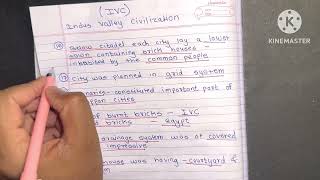 (IVC)
Indus Valley Civilization
KINEMASTER
(16) citadel each city lay a lower
town containing brick houses -
inhabited by the common people
(17) City was planned in grid system
- constituted important part of
cities
of burnt bricks - IVC
of bricks - Egypt
drainage system was of covered
impressive
house was having - courtyard &